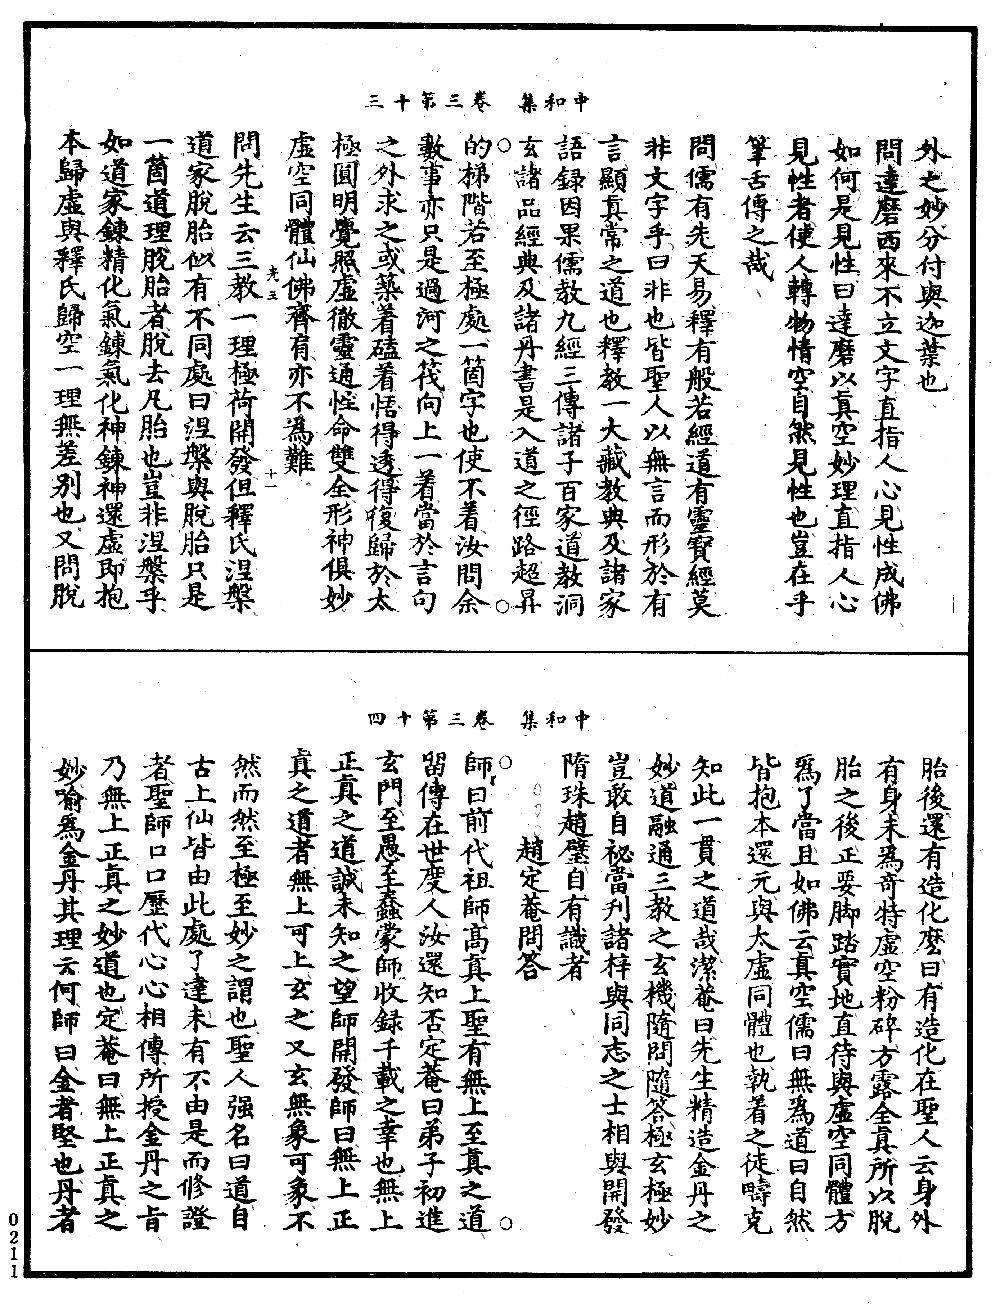 中和集　卷三第十三
外之妙分付與迦葉也
問達磨西來不立文字直指人心見性成佛
如何是見性曰達磨以真空妙理直指人心
見性者使人轉物情空自然見性也豈在乎
筆舌傳之哉
問儒有先天易釋有般若經道有靈寶經莫
非文字乎曰非也皆聖人以無言而形於有
言顯真常之道也釋教一大藏教典及諸家
語録因果儒教九經三傳諸子百家道教洞
玄諸品經典及諸丹書是入道之徑路超昇
的梯階若至極處一箇字也使不着汝問余
數事亦只是過河之筏向上一着當於言句
之外求之或築着磕着悟得透得復歸於太
極圓明覺照虛徹靈通性命雙全形神俱妙
虛空同體仙佛齊肩亦不為難
光五　十一
問先生云三教一理極荷開發但釋氏涅槃
道家脫胎似有不同處曰涅槃與脫胎只是
一箇道理脫胎者脫去凡胎也豈非涅槃乎
如道家鍊精化氣鍊氣化神鍊神還虛即抱
本歸虛與釋氏歸空一理無差別也又問脫
中和集　卷三第十四
胎後還有造化麼曰有造化在聖人云身外
有身未為奇特虛空粉碎方露全真所以脫
胎之後正要脚踏實地直待與虛空同體方
為了當且如佛云真空儒曰無為道曰自然
皆抱本還元與太虛同體也執着之徒疇克
知此一貫之道哉潔菴曰先生精造金丹之
妙道融通三教之玄機隨問隨答極玄極妙
豈敢自祕當刋諸梓與同志之士相與開發
隋珠趙璧自有識者
趙定菴問答
師曰前代祖師高真上聖有無上至真之道
留傳在世度人汝還知否定菴曰弟子初進
玄門至愚至蠢蒙師收録千載之幸也無上
正真之道誠未知之望師開發師曰無上正
真之道者無上可上玄之又玄無象可象不
然而然至極至妙之謂也聖人强名曰道自
古上仙皆由此處了達未有不由是而修證
者聖師口口歷代心心相傳所授金丹之旨
乃無上正真之妙道也定菴曰無上正真之
妙喻為金丹其理云何師曰金者堅也丹者
0211